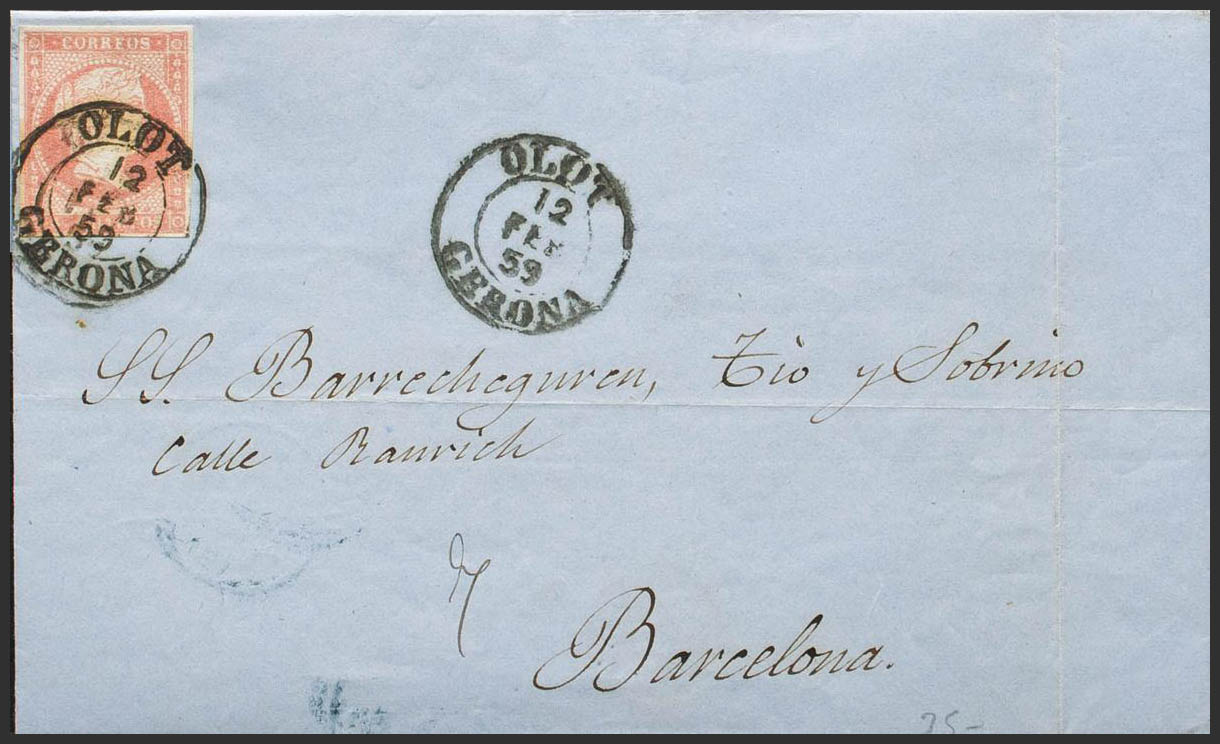 CORREOS
OLOT
12
FEB
59
GERONA
OLOT
12
FEB
59
GERONA
SS. Barrecheguren, Tio y Sobrino
Calle Raurich
Barcelona.
35-